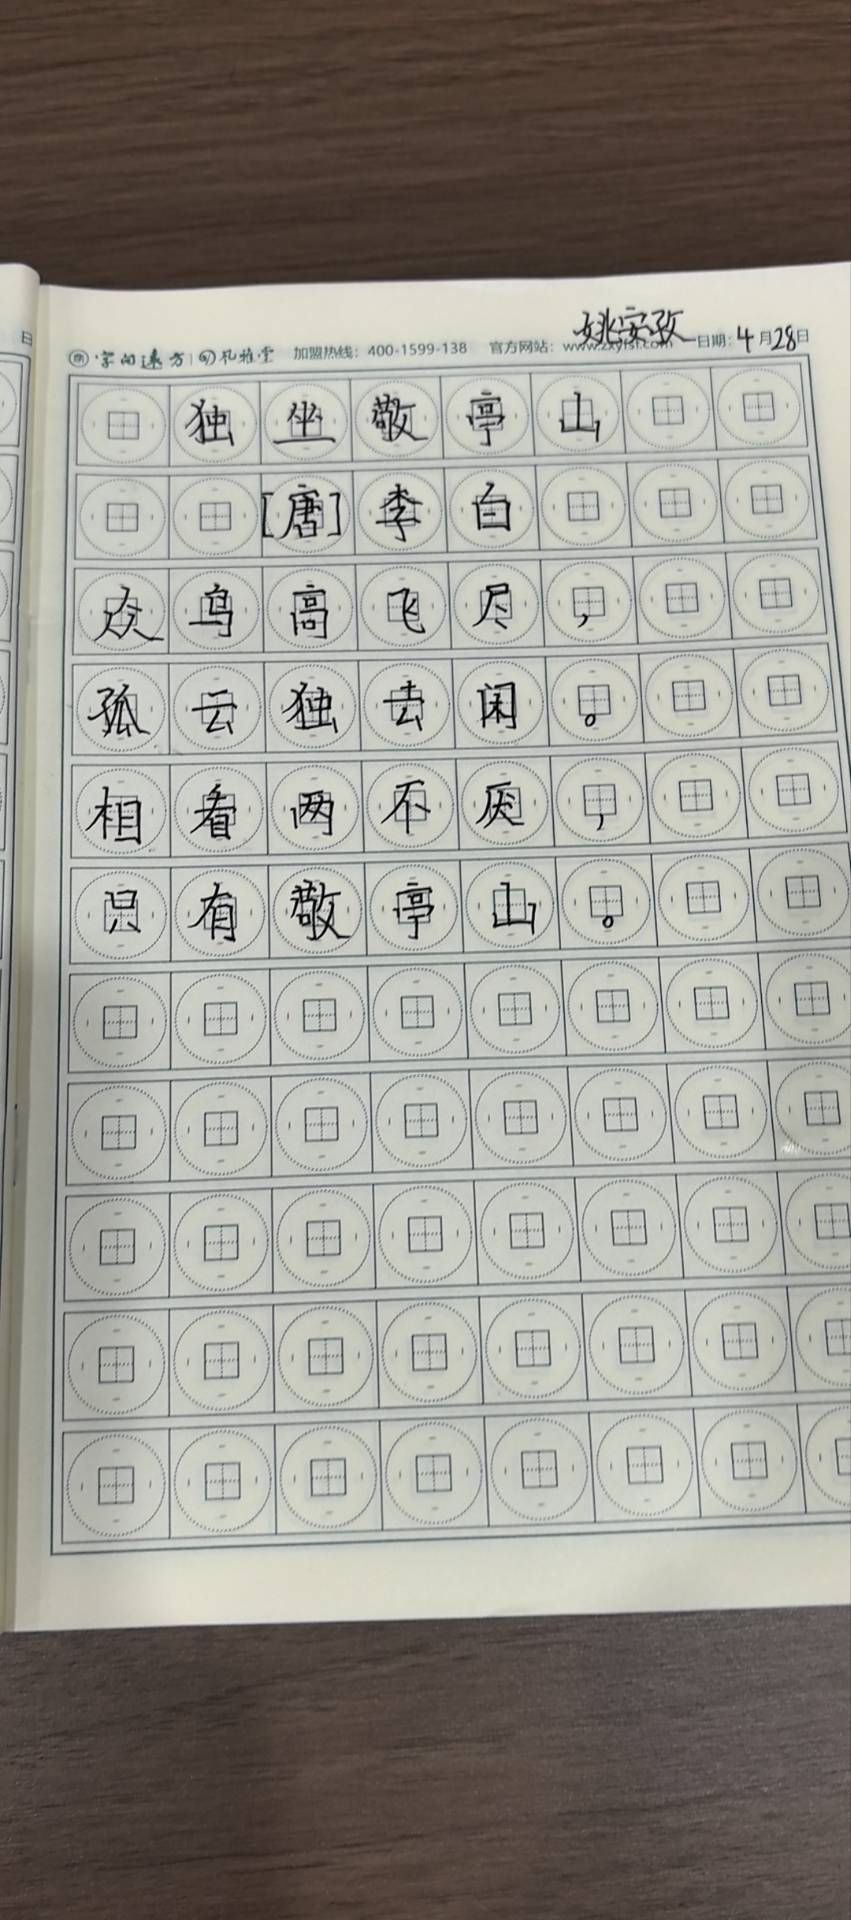 姚安孜
字向远方 孔雅堂 加盟热线：400-1599-138 官方网站：www.zxyfsf.com 日期：4月28日
日
独坐敬亭山
[唐]李白
众鸟高飞尽，
孤云独去闲。
相看两不厌，
只有敬亭山。